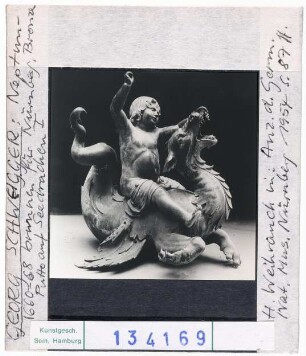 GEORG SCHWEIGGER Neptun-
1660-68 brunnen für Nürnberg. Bronze
Putto auf Seedrachen I
H. Weihrauch in: Anz. d. Germ.
Nat. Mus. Nürnberg 1954 S. 87 ff.
Kunstgesch.
Sem. Hamburg
134169